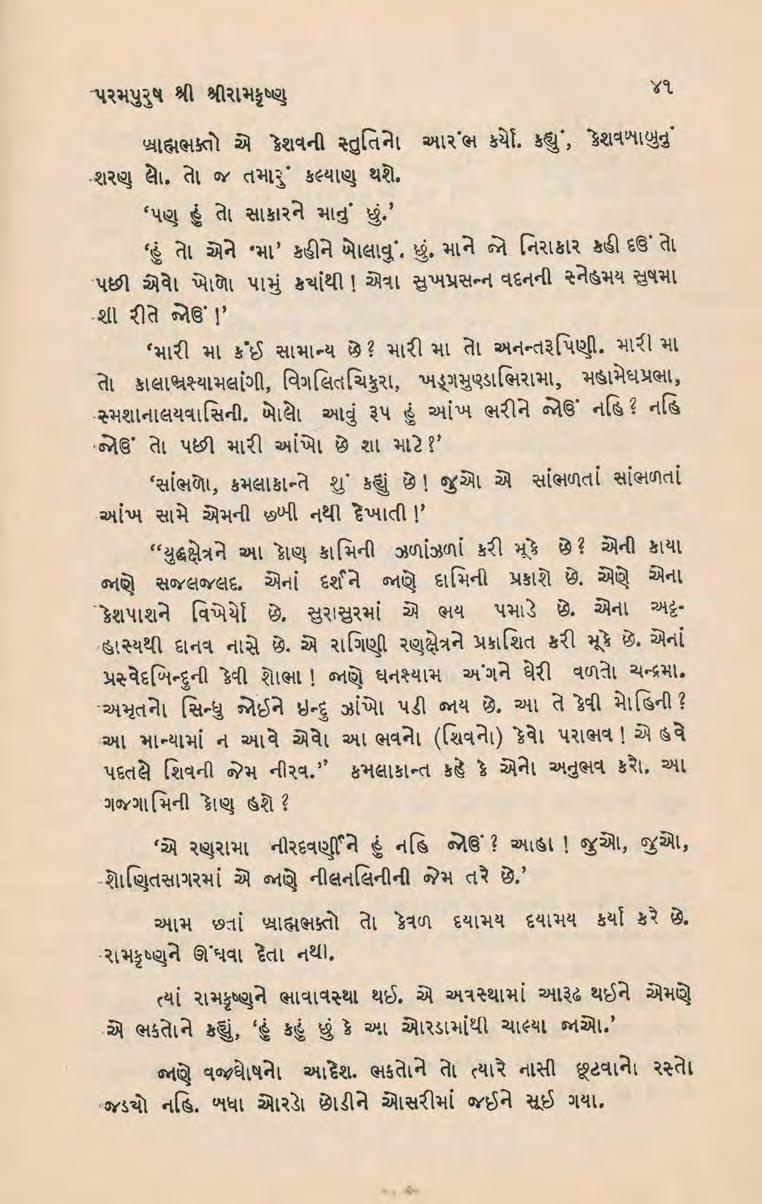 પરમપુરુષ શ્રી શ્રીરામકૃષ્ણ
૪૧
બ્રાહ્મભક્તો એ કેશવની સ્તુતિનો આરંભ કર્યો. કહ્યું, કેશવબાબુનું
શરણ લો. તો જ તમારું કલ્યાણ થશે.
‘પણ હું તો સાકારને માનું છું.’
‘હું તો એને ‘મા’ કહીને બોલાવું. છું. માને જો નિરાકાર કહી દઉં તો
પછી એવો ખોળો પામું ક્યાંથી ! એવા સુખપ્રસન્ન વદનની સ્નેહમય સુષમા
શી રીતે જોઉં !’
‘મારી મા કંઈ સામાન્ય છે ? મારી મા તો અનન્તરૂપિણી. મારી મા
તો કાલાભ્રશ્યામલાંગી, વિગલિતચિકુરા, ખડ્ગમુણ્ડાભિરામા, મહામેઘપ્રભા,
સ્મશાનાલયવાસિની. બોલો આવું રૂપ હું આંખ ભરીને જોઉં નહિ ? નહિ
જોઉં તો પછી મારી આંખો છે શા માટે ?’
‘સાંભળો, કમલાકાન્તે શું કહ્યું છે ! જુઓ એ સાંભળતાં સાંભળતાં
આંખ સામે એમની છબી નથી દેખાતી !’
“યુદ્ધક્ષેત્રને આ કોણ કામિની ઝળાંઝળાં કરી મૂકે છે ? એની કાયા
જાણે સજલજલદ. એનાં દર્શને જાણે દામિની પ્રકાશે છે. એણે એના
કેશપાશને વિખેર્યો છે. સુરાસુરમાં એ ભય પમાડે છે. એના અટ્ટ-
હાસ્યથી દાનવ નાસે છે. એ રાગિણી રણક્ષેત્રને પ્રકાશિત કરી મૂકે છે. એનાં
પ્રસ્વેદબિન્દુની કેવી શોભા ! જાણે ઘનશ્યામ અંગને ઘેરી વળતો ચન્દ્રમા.
અમૃતનો સિન્ધુ જોઈને ઇન્દુ ઝાંખો પડી જાય છે. આ તે કેવી મોહિની ?
આ માન્યામાં ન આવે એવો આ ભવનો (શિવનો) કેવો પરાભવ ! એ હવે
પદતલે શિવની જેમ નીરવ.” કમલાકાન્ત કહે કે એનો અનુભવ કરો. આ
ગજગામિની કોણ હશે ?
‘એ રણરામા નીરદવર્ણીને હું નહિ જોઉં ? આહા ! જુઓ, જુઓ,
શોણિતસાગરમાં એ જાણે નીલનલિનીની જેમ તરે છે.’
આમ છતાં બ્રાહ્મભક્તો તો કેવળ દયામય દયામય કર્યા કરે છે.
રામકૃષ્ણને ઊંઘવા દેતા નથી.
ત્યાં રામકૃષ્ણને ભાવાવસ્થા થઈ. એ અવસ્થામાં આરૂઢ થઈને એમણે
એ ભક્તોને કહ્યું, ‘હું કહું છું કે આ ઓરડામાંથી ચાલ્યા જાઓ.’
જાણે વજ્રઘોષનો આદેશ. ભક્તોને તો ત્યારે નાસી છૂટવાનો રસ્તો
જડ્યો નહિ. બધા ઓરડો છોડીને ઓસરીમાં જઈને સૂઈ ગયા.